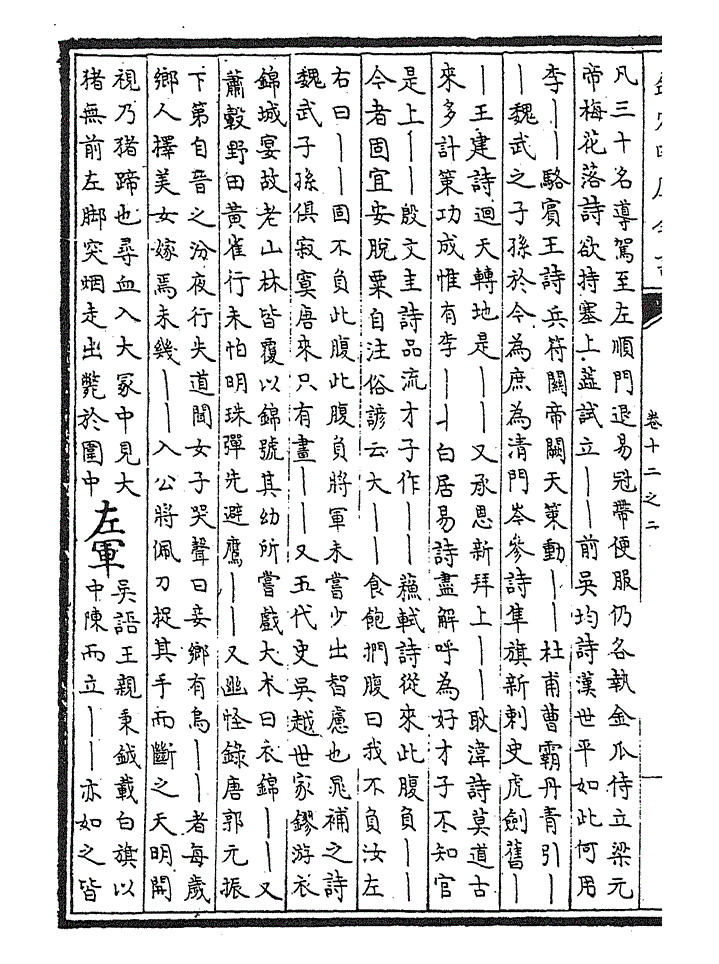 卷十二之二
凡三十名導駕至左順門退易冠帶便服仍各執金瓜侍立梁元
帝梅花落詩欲持塞上蓋試立——前吳均詩漢世平如此何用
李——駱賓王詩兵符關帝闕天策動——杜甫曹霸丹青引—
—魏武之子孫於今為庶為清門岑參詩隼旗新刺史虎劍舊—
—王建詩迴天轉地是——又承恩新拜上——耿湋詩莫道古
來多計策功成惟有李——白居易詩盡解呼為好才子不知官
是上——殷文圭詩品流才子作——蘇軾詩從來此腹負——
今者固宜安脫粟自注俗諺云大——食飽捫腹曰我不負汝左
右曰——固不負此腹此腹負將軍未嘗少出智慮也晁補之詩
魏武子孫俱寂寞唐來只有畫——又五代史吳越世家鏐游衣
錦城宴故老山林皆覆以錦號其幼所嘗戲大木曰衣錦——又
蕭轂野田黃雀行未怕明珠彈先避鷹——又幽怪錄唐郭元振
下第自晉之汾夜行失道聞女子哭聲曰妾鄉有烏——者每歲
鄉人擇美女嫁焉未幾——入公將佩刀捉其手而斷之天明開
視乃豬蹄也尋血入大冢中見大
豬無前左脚突烟走出斃於圍中
左軍
吳語王親秉鉞載白旗以
中陳而立——亦如之皆